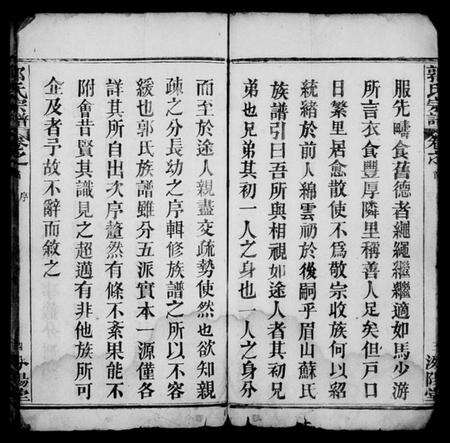 服先疇食舊德者繩繩繼繼適如馬少游
所言衣食豐厚隣里稱善人足矣但戸口
日繁里居愈散使不爲敬宗收族何以紹
統緒於前人綿雲礽於後嗣乎眉山蘇氏
族譜引曰吾所與相視如途人者其初兄
弟也兄弟其初一人之身也一人之身分
而至於途人親盡交疏勢使然也欲知親
疎之分長幼之序輯修族譜之所以不容
緩也郭氏族譜雖分五派實本一源僅各
詳其所自出次序釐然有條不紊果能不
附會昔賢其識見之超適有非他族所可
企及者予故不辭而敘之
郭氏宗譜
序